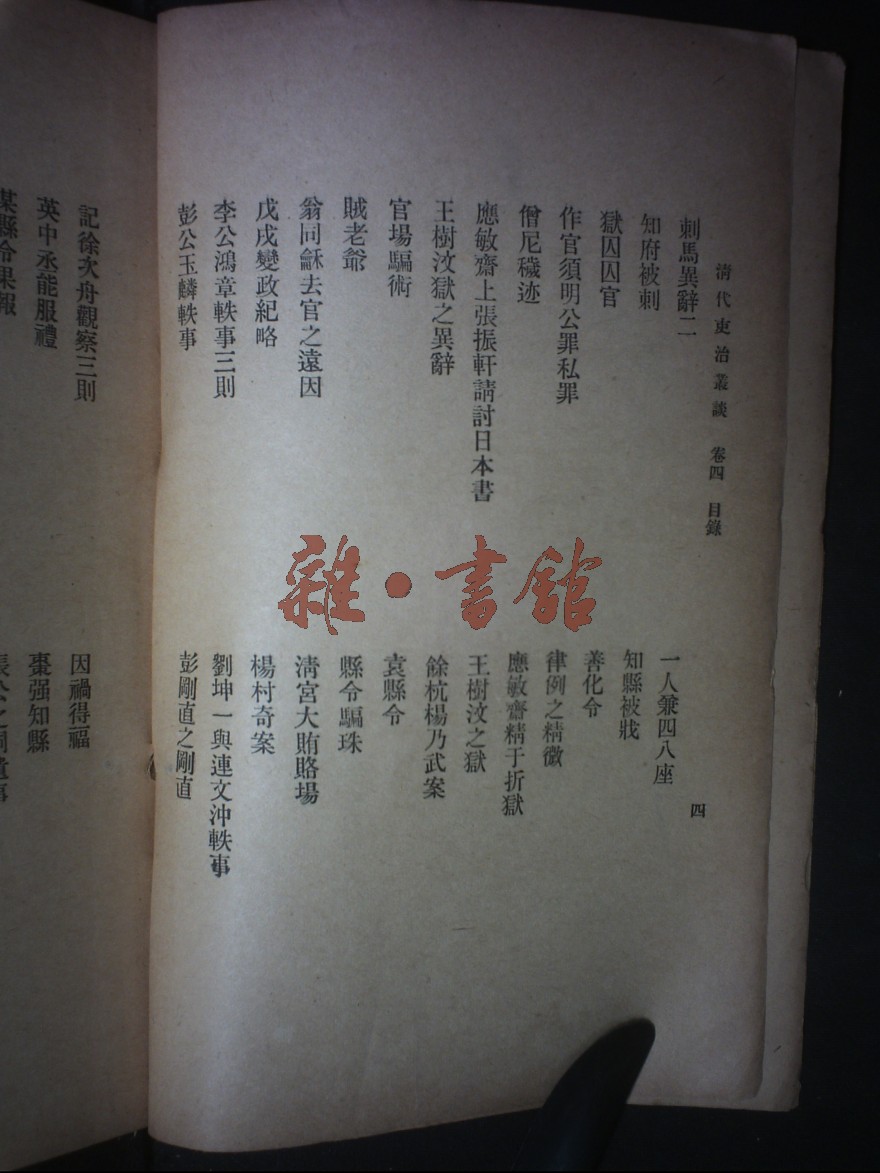 清代吏治叢談 卷四 目錄 四
刺馬異辭二
一人兼四八座
知府被刺
知縣被戕
獄囚囚官
善化令
作官須明公罪私罪
律例之精微
僧尼穢迹
應敏齋精于折獄
應敏齋上張振軒請討日本書
王樹汶之獄
王樹汶獄之異辭
餘杭楊乃武案
官場騙術
袁縣令
賊老爺
縣令騙珠
翁同龢去官之遠因
清宮大賄賂場
戊戌變政紀略
楊村奇案
李公鴻章軼事三則
劉坤一與連文沖軼事
彭公玉麟軼事
彭剛直之剛直
記徐次舟觀察三則
因禍得福
英中丞能服禮
棗强知縣
某縣令果報
雜·書館